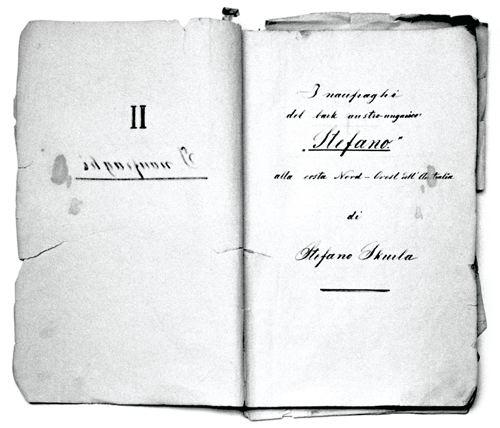 II
I naufraghi
I naufraghi
del bark austro-ungarico
"Stefano"
alla costa Nord-Ovest dell'Australia
di
Stefano Skurla